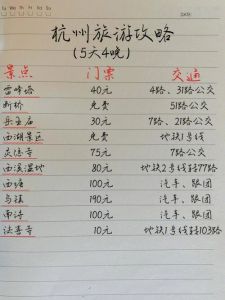 Tu We Th Fr Sa Su
DATE:
杭州旅游攻略
(5天4晚)
景点 门票 交通
雷峰塔 40元 4路、31路公交
断桥 免费 51路公交
岳王庙 30元 7路、21路公交
西湖景区 免费 地铁1号线
灵隐寺 75元 7路公交
西溪湿地 80元 地铁2号线转77路
西塘 100元 汽车、跟团
乌镇 190元 汽车、跟团
南浔 100元 汽车、跟团
法喜寺 10元 地铁1号线转103路